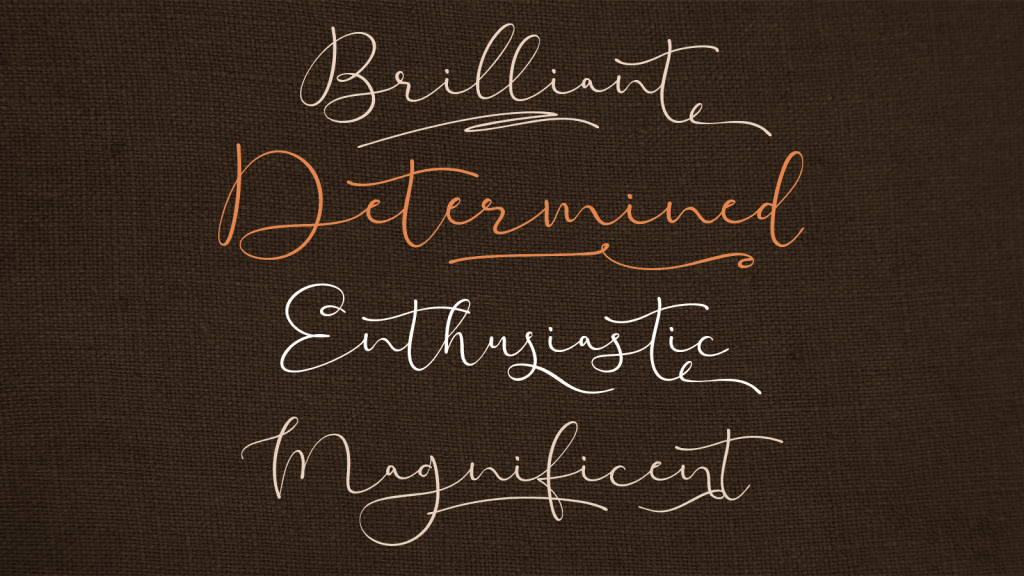 Brilliant
Determined
Enthusiastic
Magnificent